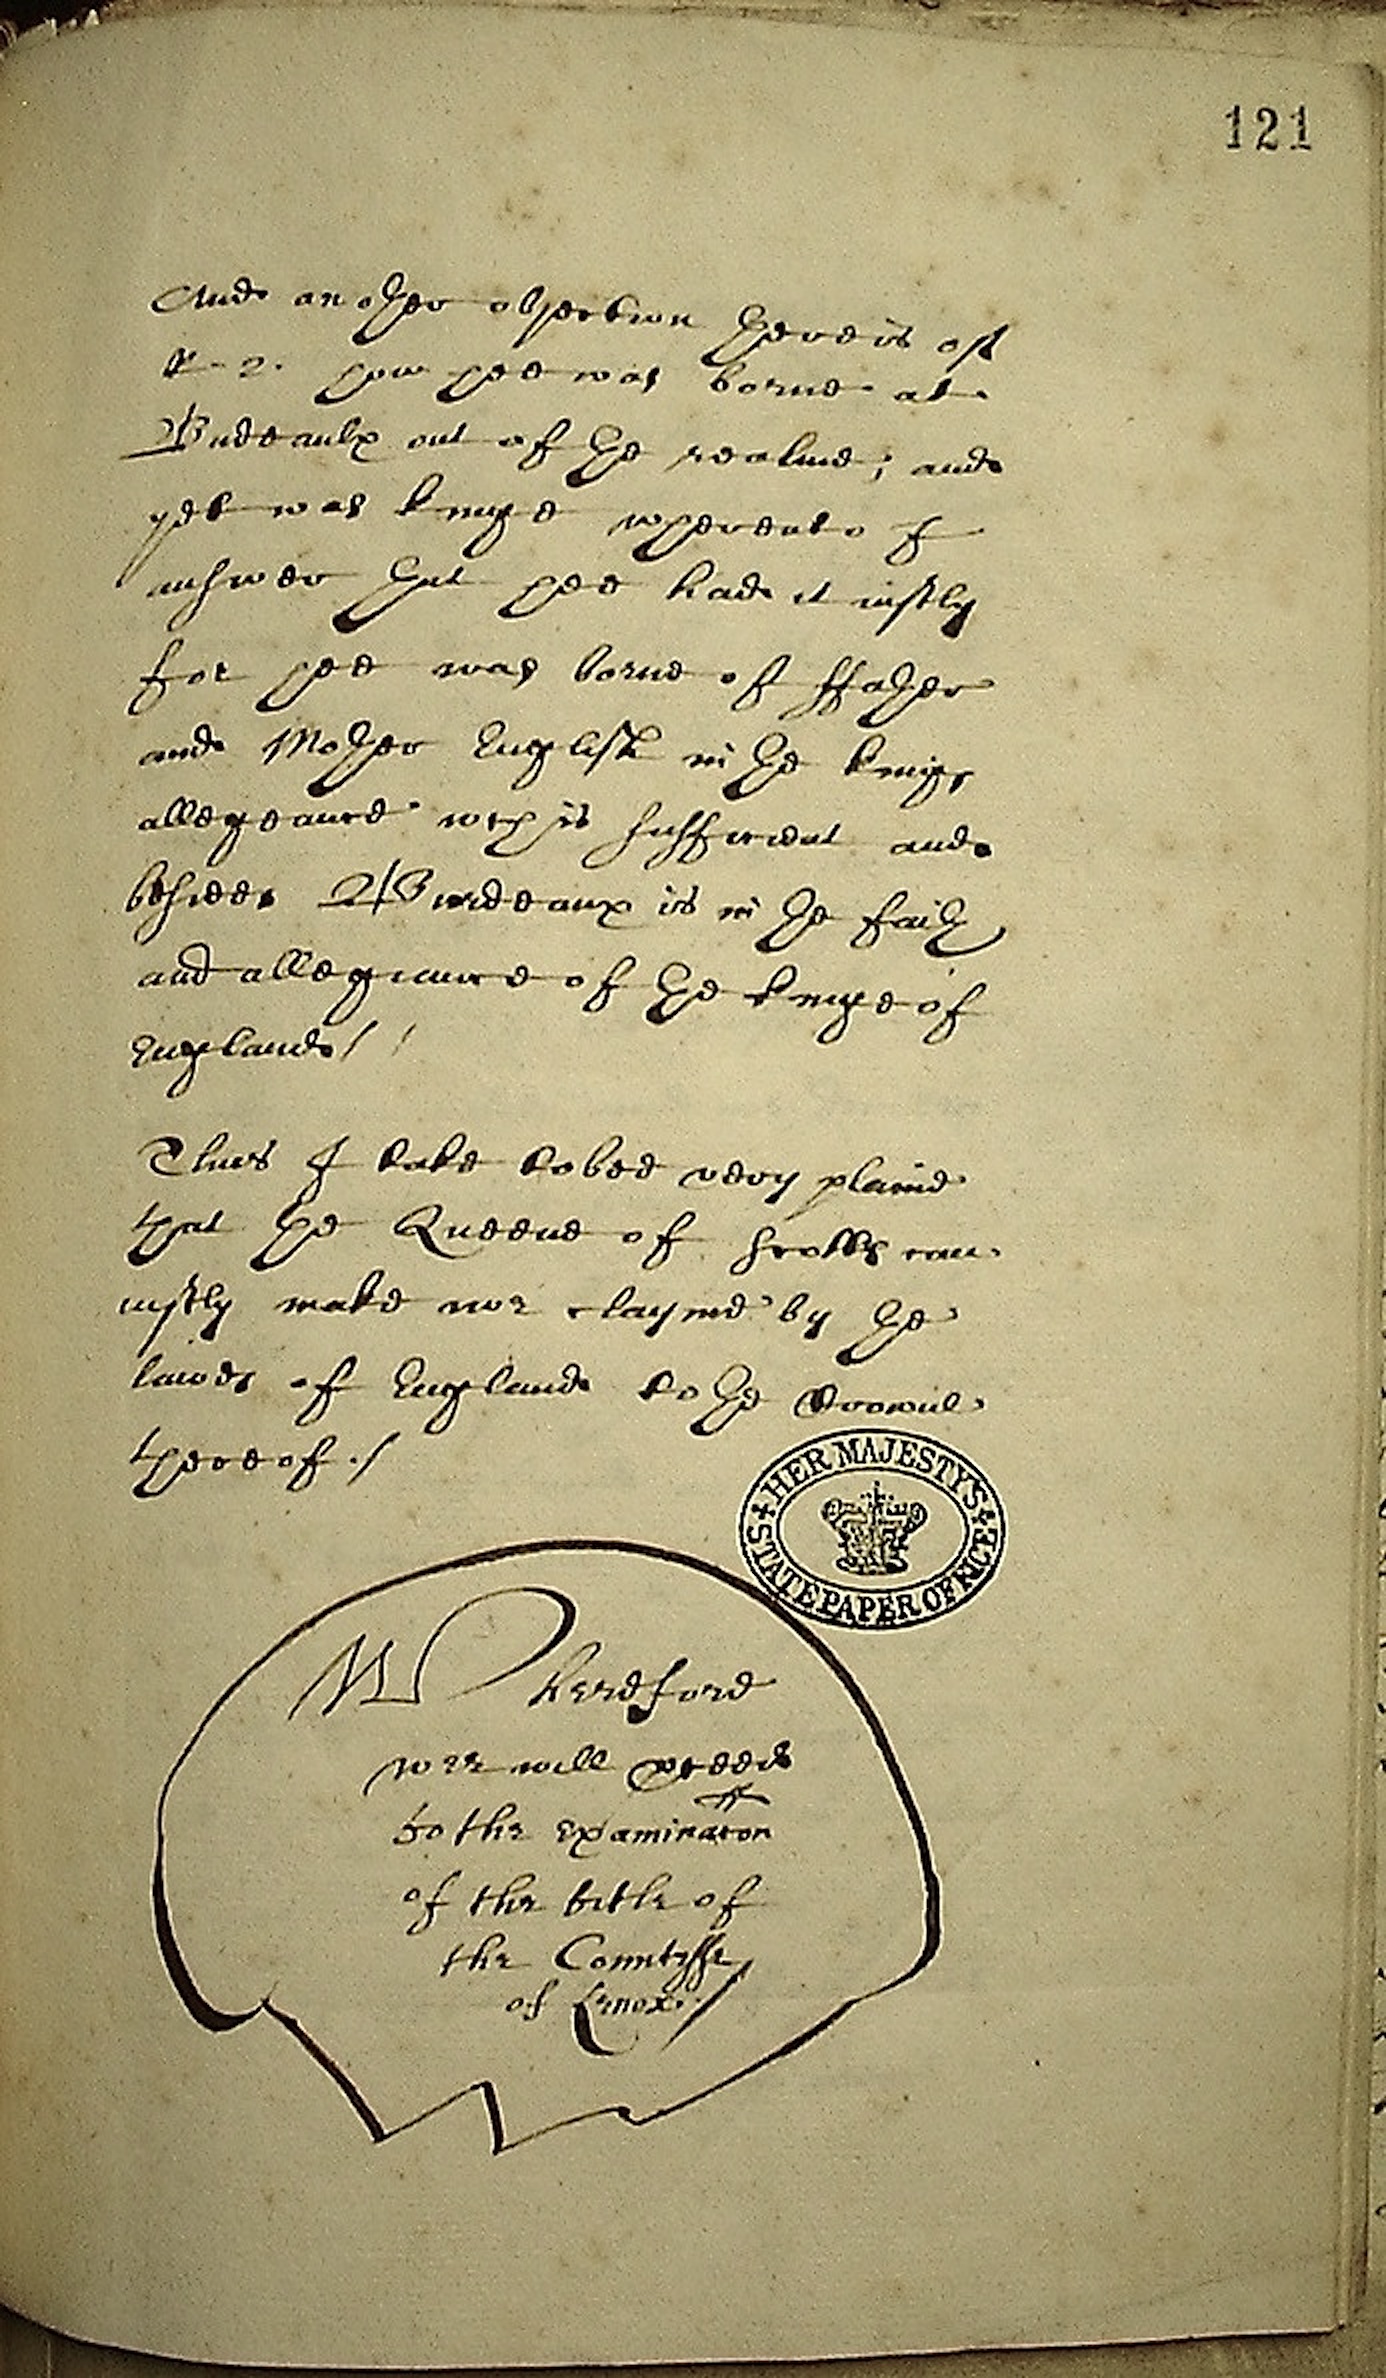 121
And an other objection there is of
R. 2. how hee was borne at
Burdeaulx out of the realme; and
yet was kinge wherento I
answer that hee had it iustly
for hee was borne of ffather
and Mother English in the kings
allegeance wch is sufficient and
besides Burdeaux is in the faith
and allegiance of the kinge of
England /
Thus I take to bee very plaine
that the Queene of Scotts can
iustly make noe clayme by the
lawes of England to the Crowne
thereof ./
HER MAJESTY'S
STATE PAPER OFFICE
herefore
wee will proceed
to the examinacon
of the title of
the Countesse
of Lenox ./